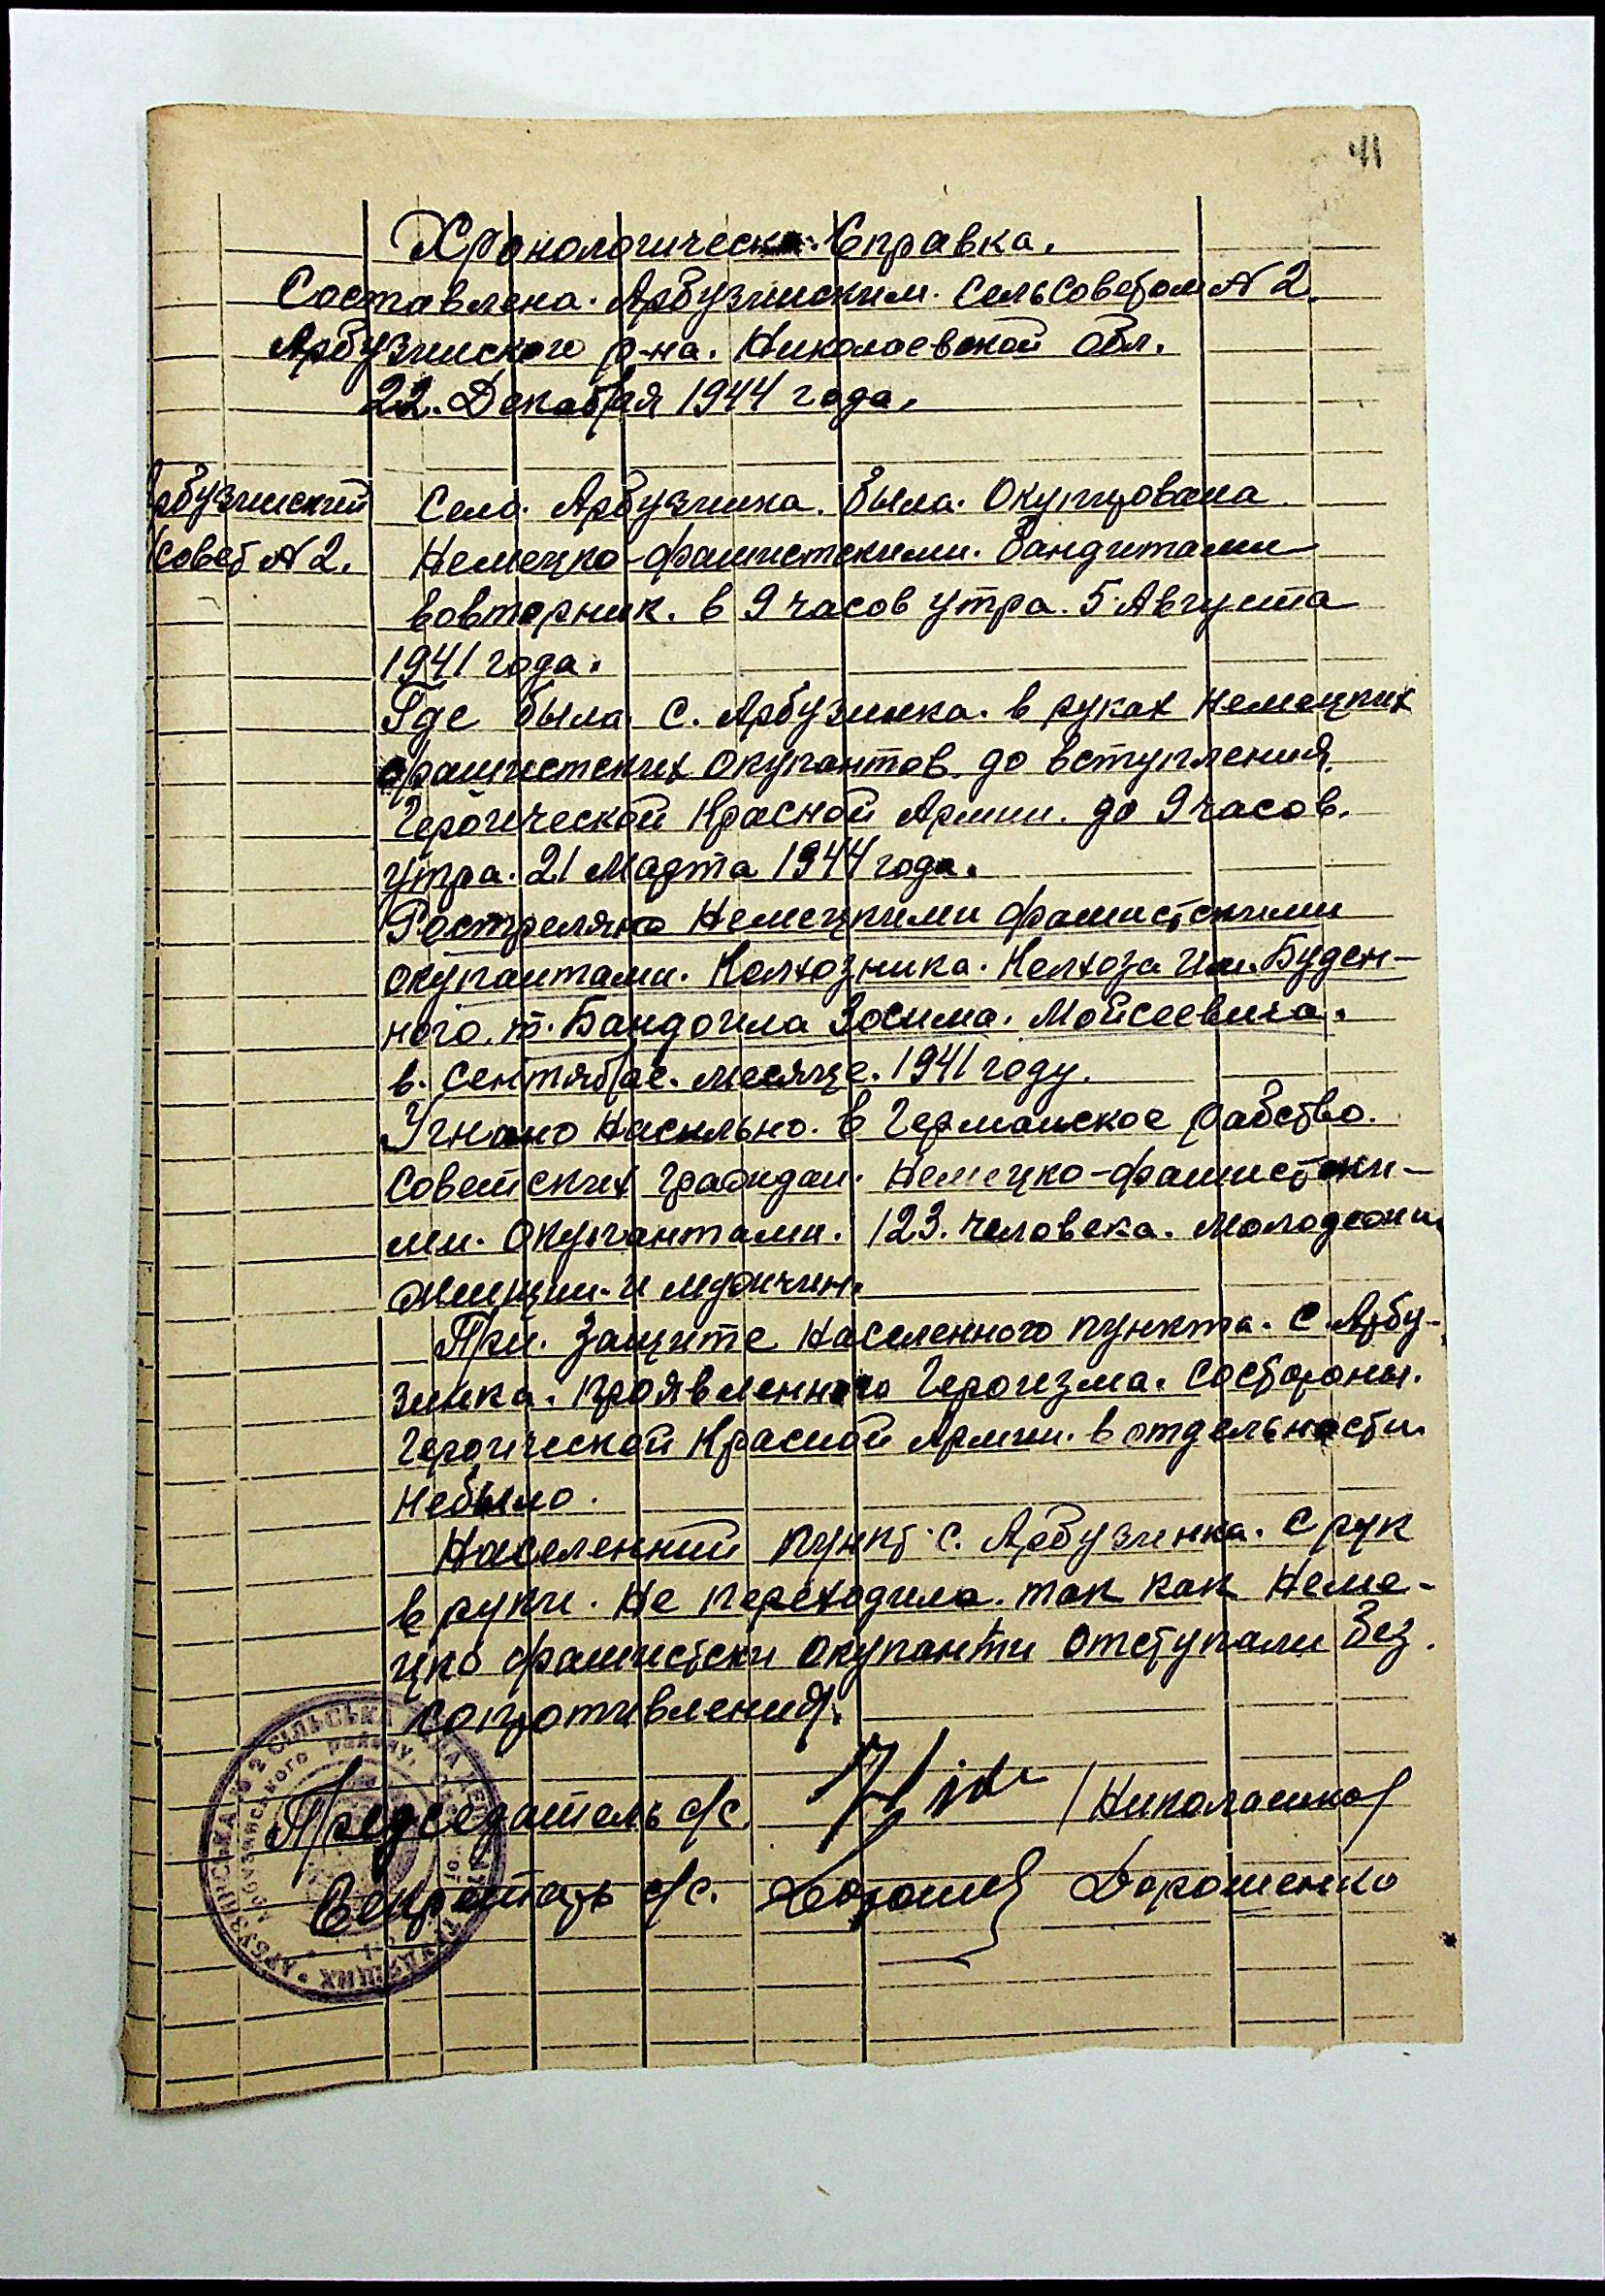 41
Хронологическ. Справка.
Составлена. Арбузинским. Сельсоветом N 2.
Арбузинского р-на. Николаевской обл.
22. Декабря 1944 года.
Арбузинский
Совет N 2.
Село. Арбузинка. была. Окупирована
Немецко-фашистскими. бандитами
вовторник. в 9 часов утра. 5 Августа
1941 года.
Где была. с. Арбузинка. в руках Немецких
фашистских окупантов. до вступления.
Героической Красной Армии. до 9 часов.
утра. 21 Марта 1944 года.
Ростреляно Немецкими фашистскими
окупантами. Колхозника. Колхоза им. Буден-
ного. т. Бандоила Зосима. Мойсеевича.
в. Сентябре. месяце. 1941 году.
Угнано Насильно. в Германское рабство.
Советских граждан. Немецко-фашистски-
ми. Окупантами. 123. человека. молодежи
женщин. и мужчин.
При. Защите Населенного пункта. с. Арбу-
зинка. проявленного Героизма. состороны.
Героической Красной Армии. в отдельности
небыло.
Населенний пункт с. Арбузинка. с рук
в руки. Не переходила. так как Неме-
цко фашистски окупанти отступали без.
сопротивления.
Председатель с/с. /Николаенко/
Секретарь с/с. Дорошенко
АРБУЗИНСЬКА № 2 СІЛЬСЬКА РАДА ДЕПУТАТІВ ТРУДЯЩИХ
Арбузинського району,